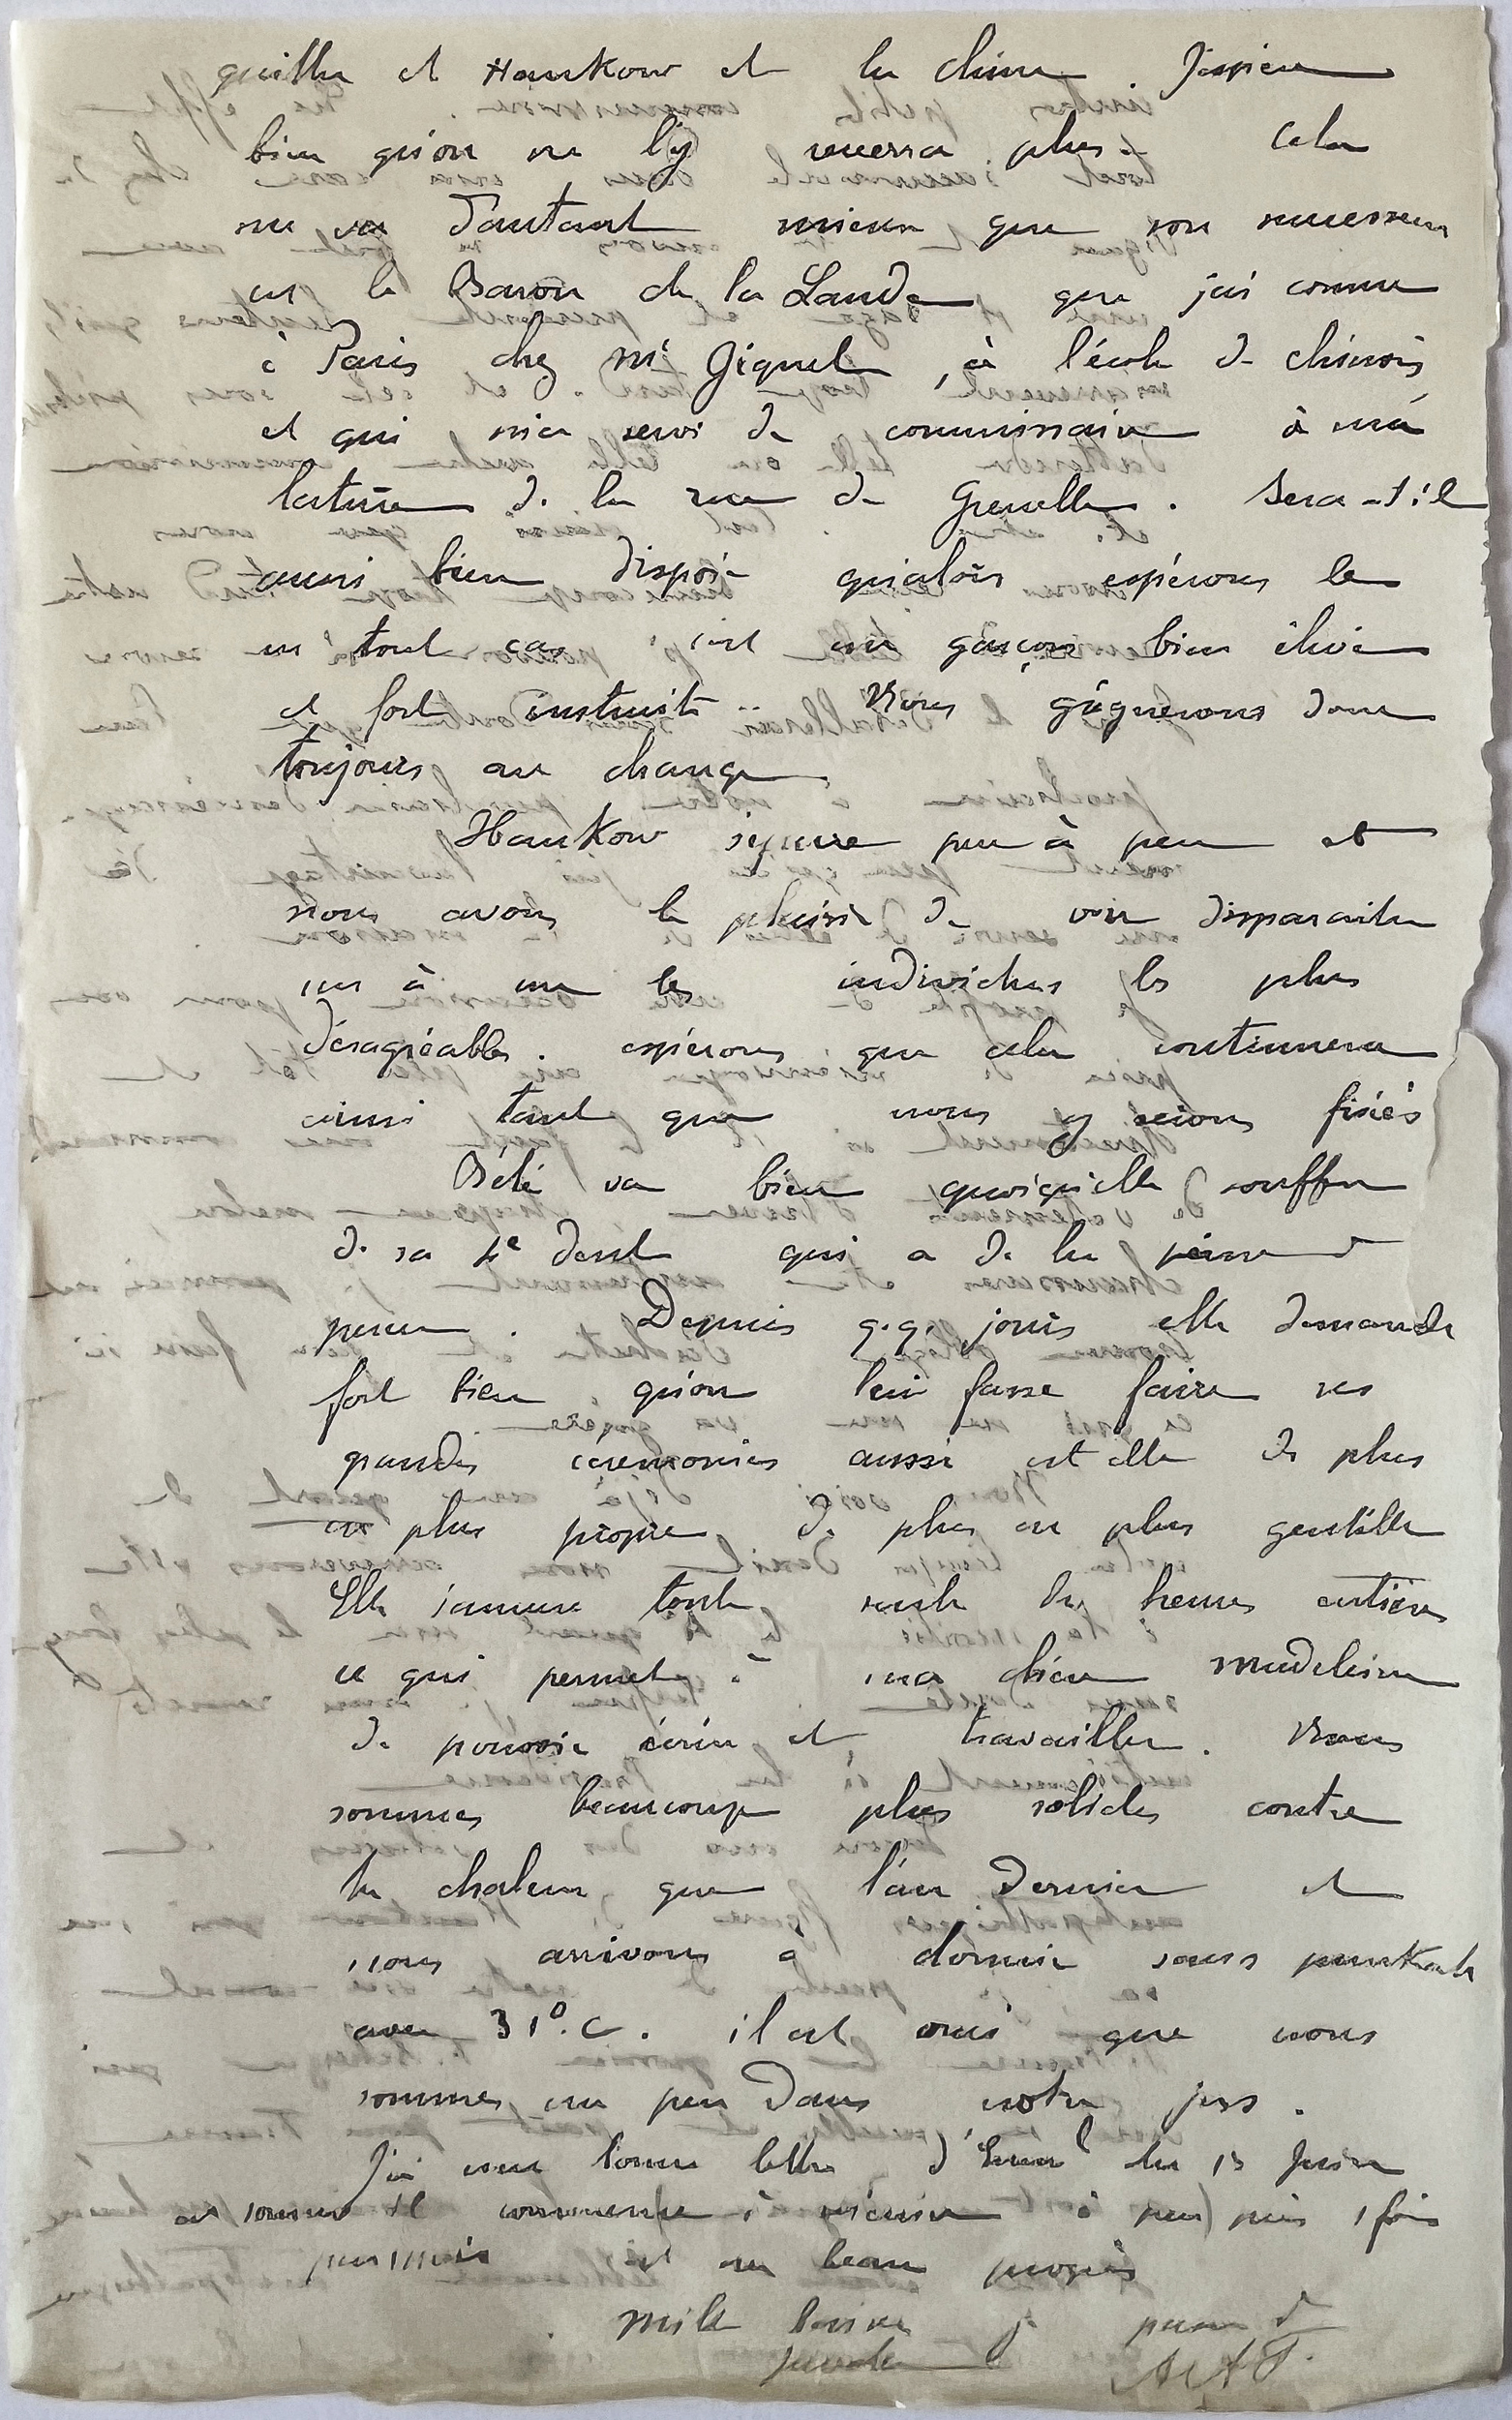 quitter et Hankow et la chine. J'espère
bien qu'on ne l'y reverra plus. Cela
me va d'autant mieux que son successeur
est le Baron de la Lande que j'ai connu
à Paris chez Mr Giquel, à l'école de chinois
et qui m'a servi de commissaire à ma
de la rue de Grenelle. Sera-t-il
aussi bien disposé qu'alors espérons le
en tout cas c'est un garçon bien élevé
et fort instruit. Nous gagnerons donc
toujours au change.
Hankow s'épure peu à peu et
nous avons le plaisir de voir disparaitre
un à un les individus les plus
désagréables. espérons que cela continuera
ainsi tant que nous y serons fixés
Bébé va bien quoiqu'elle souffre
de sa 4e dent qui a de la peine à
percer. Depuis q.q. jours elle demande
fort bien qu'on lui fasse faire ses
grandes cérémonies aussi est elle de plus
en plus propre, de plus en plus gentille
Elle s'amuse toute seule des heures entières
ce qui permet à ma chère Madeleine
de pouvoir écrire et travailler. Nous
sommes beaucoup plus solides contre
la chaleur que l'an dernier et
nous arrivons à dormir sans punkah
avec 31°.C. il est vrai que nous
sommes un peu dans notre jus.
J'ai une bonne lettre d' du 13 Juin
en somme il commence à écrire à peu près 1 fois
par mois c'est un beau progrès
Mille baisers